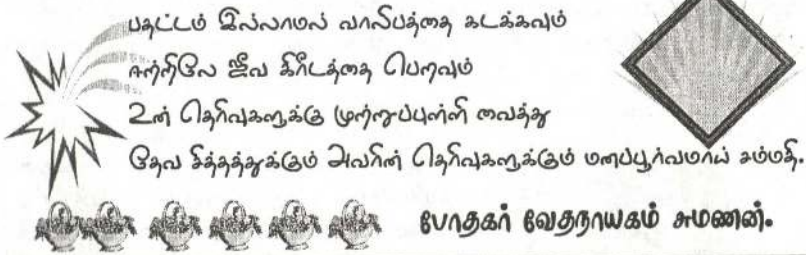 பதட்டம் இல்லாமல் வாலிபத்தை கடக்கவும்
ஈற்றிலே ஜீவ கிரீடத்தை பெறவும்
உன் தெரிவுகளுக்கு முற்றுப்புள்ளி வைத்து
தேவ சித்தத்துக்கும் அவரின் தெரிவுகளுக்கும் மனப்பூர்வமாய் சம்மதி.
போதகர் வேதநாயகம் சுமணன்.